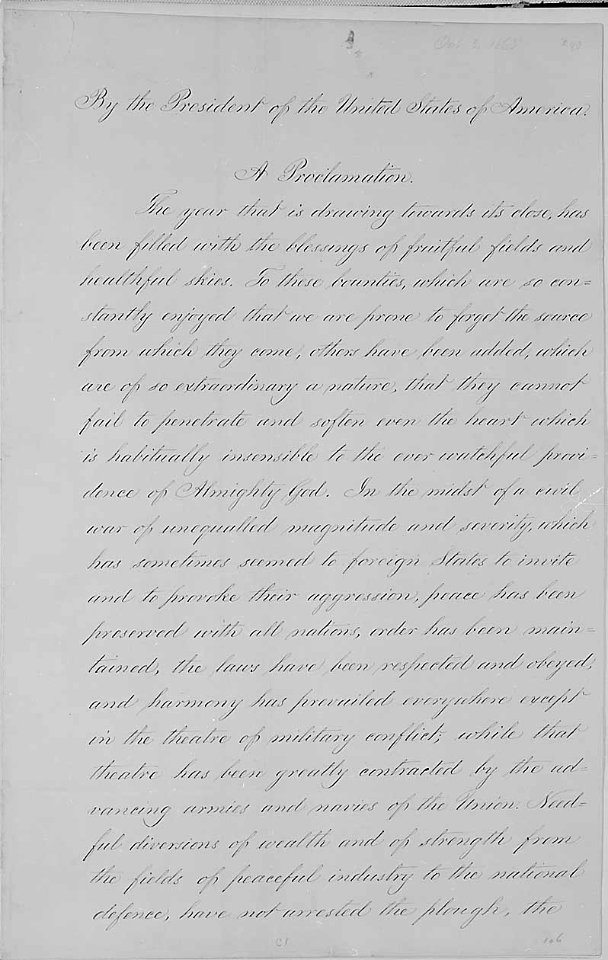 By the President of the United States of America.
A Proclamation.
The year that is drawing towards its close, has
been filled with the blessings of fruitful fields and
healthful skies. To these bounties, which are so con=
stantly enjoyed that we are prone to forget the source
from which they come, others have been added, which
are of so extraordinary a nature, that they cannot
fail to penetrate and soften even the heart which
is habitually insensible to the ever watchful provi-
dence of Almighty God. In the midst of a civil
war of unequalled magnitude and severity, which
has sometimes seemed to foreign States to invite
and to provoke their aggression, peace has been
preserved with all nations, order has been main-
tained, the laws have been respected and obeyed,
and harmony has prevailed everywhere except
in the theatre of military conflict; while that
theatre has been greatly contracted by the ad-
vancing armies and navies of the Union. Need-
ful diversions of wealth and of strength from
the fields of peaceful industry to the national
defence, have not arrested the plough, the